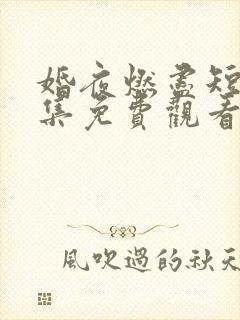 婚夜燃盡短
集免費觀看
風吹過的秋天